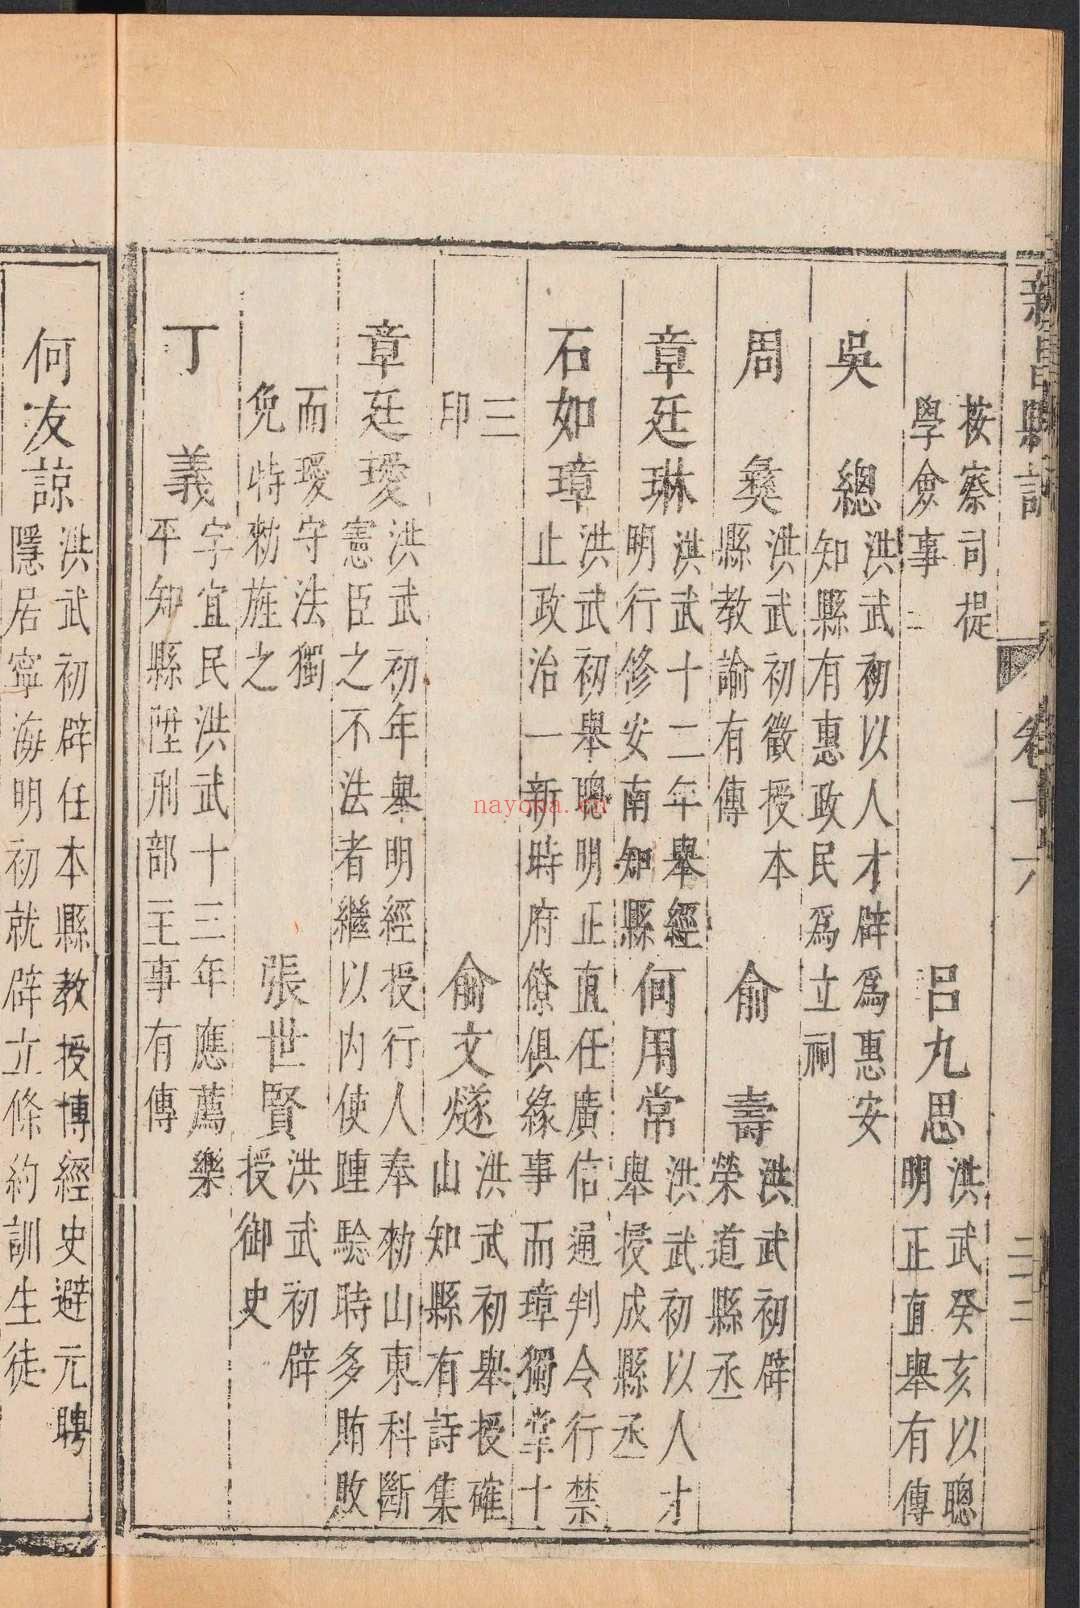 新昌縣誌
卷十六
二十二
按察司提
學僉事
呂九思
洪武癸亥以聰
明正直舉有傳
吳總
洪武初以人才辟爲惠安
知縣有惠政民爲立祠
周彝
洪武初徵授本
縣教諭有傳
俞壽
洪武初辟
榮道縣丞
章廷琳
洪武十二年舉經
明行修安南知縣
何用常
洪武初以人才
舉授成縣丞
石如璋
洪武初舉聰明正直任廣信通判令行禁
止政治一新時府僚俱緣事而璋獨掌十
三
印
俞文燧
洪武初舉授確
山知縣有詩集
章廷璦
洪武初年舉明經授行人奉勑山東科斷
憲臣之不法者繼以內使踵驗時多賄敗
而璦守法獨
免特勑旌之
張世賢
洪武初辟
授御史
丁義
字宜民洪武十三年應薦樂
平知縣陞刑部主事有傳
何友諒
洪武初辟任本縣教授博經史避元聘
隱居寧海明初就辟立條約訓生徒
nayoka.cn